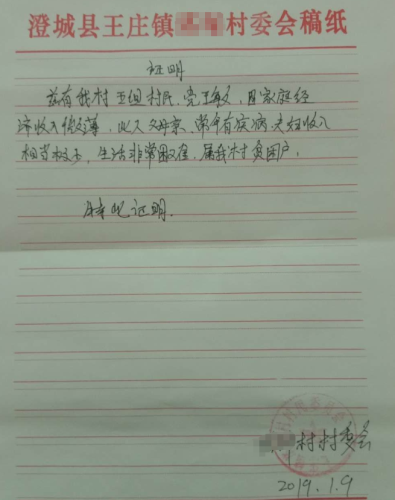 澄城县王庄镇村委会稿纸
证明
兹有我村五组村民,党,因家庭经
济收入微薄,常年有疾病,夫妇收入
相当,生活非常困难,属我村贫困户,
特此证明.
村村委会
2019.1.9